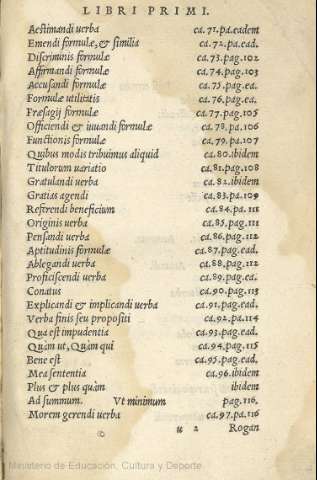 LIBRI PRIMI.
Aestimandi uerba ca. 71. pa. eadem
Emendi formulæ, & similia ca. 72. pa. ead.
Discriminis formulæ ca. 73. pag. 102
Affirmandi formulæ ca. 74. pag. 103
Accusandi formulæ ca. 75. pag. ea.
Formulæ utilitatis ca. 76. pag. ea.
Præsagij formulæ ca. 77. pag. 105
Officiendi & iuuandi formulæ ca. 78. pa. 106
Functionis formulæ ca. 79. pa. 107
Quibus modis tribuimus aliquid ca. 80. ibidem
Titulorum uariatio ca. 81. pag. 108
Gratulandi uerba ca. 82. ibidem
Gratias agendi ca. 83. pa. 109
Referendi beneficium ca. 84. pa. 111
Originis uerba ca. 85. pag. 111
Pensandi uerba ca. 86. pag. 112
Aptitudinis formulæ ca. 87. pag. ead.
Ablegandi uerba ca. 88. pag. 112
Proficiscendi uerba ca. 89. pag. ea.
Conatus ca. 90. pag. 113
Explicandi & implicandi uerba ca. 91. pag. ead.
Verba finis seu propositi ca. 92. pa. 114
Qua est impudentia ca. 93. pag. ead.
Quàm ut, Quàm qui ca. 94. pag. 115
Bene est ca. 95. pag. ead.
Mea sententia ca. 96. ibidem
Plus & plus quàm ibidem
Ad summum. Vt minimum pag. 116.
Morem gerendi uerba ca. 97. pa. 116
u 2 Rogan
Ministerio de Educación, Cultura y Deporte